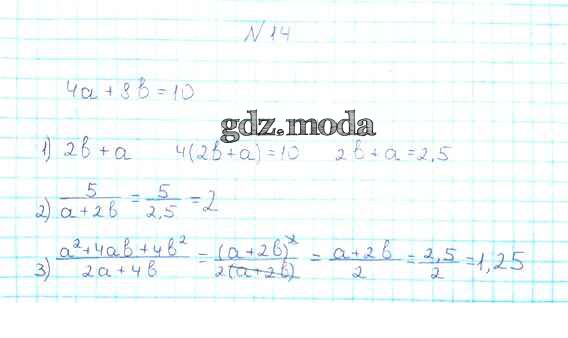 N14
4a + 8b = 10
gdz.moda
1) 2b + a 4(2b + a) = 10 2b + a = 2,5
2) 5/(a + 2b) = 5/2,5 = 2
3) (a² + 4ab + 4b²)/(2a + 4b) = (a + 2b)²/(2(a + 2b)) = (a + 2b)/2 = 2,5/2 = 1,25